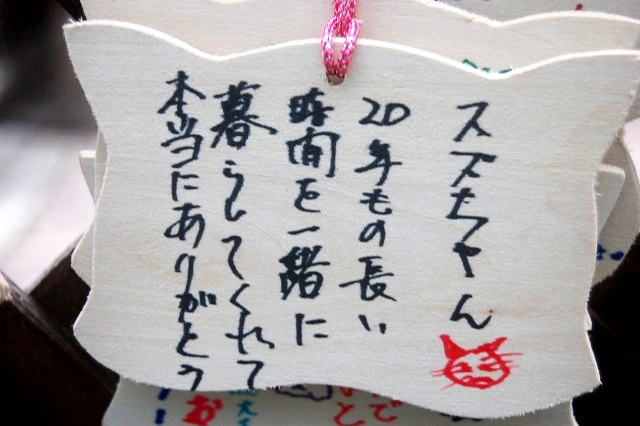 スズちゃん
20年もの長い
時間を一緒に
暮らしてくれて
本当にありがとう